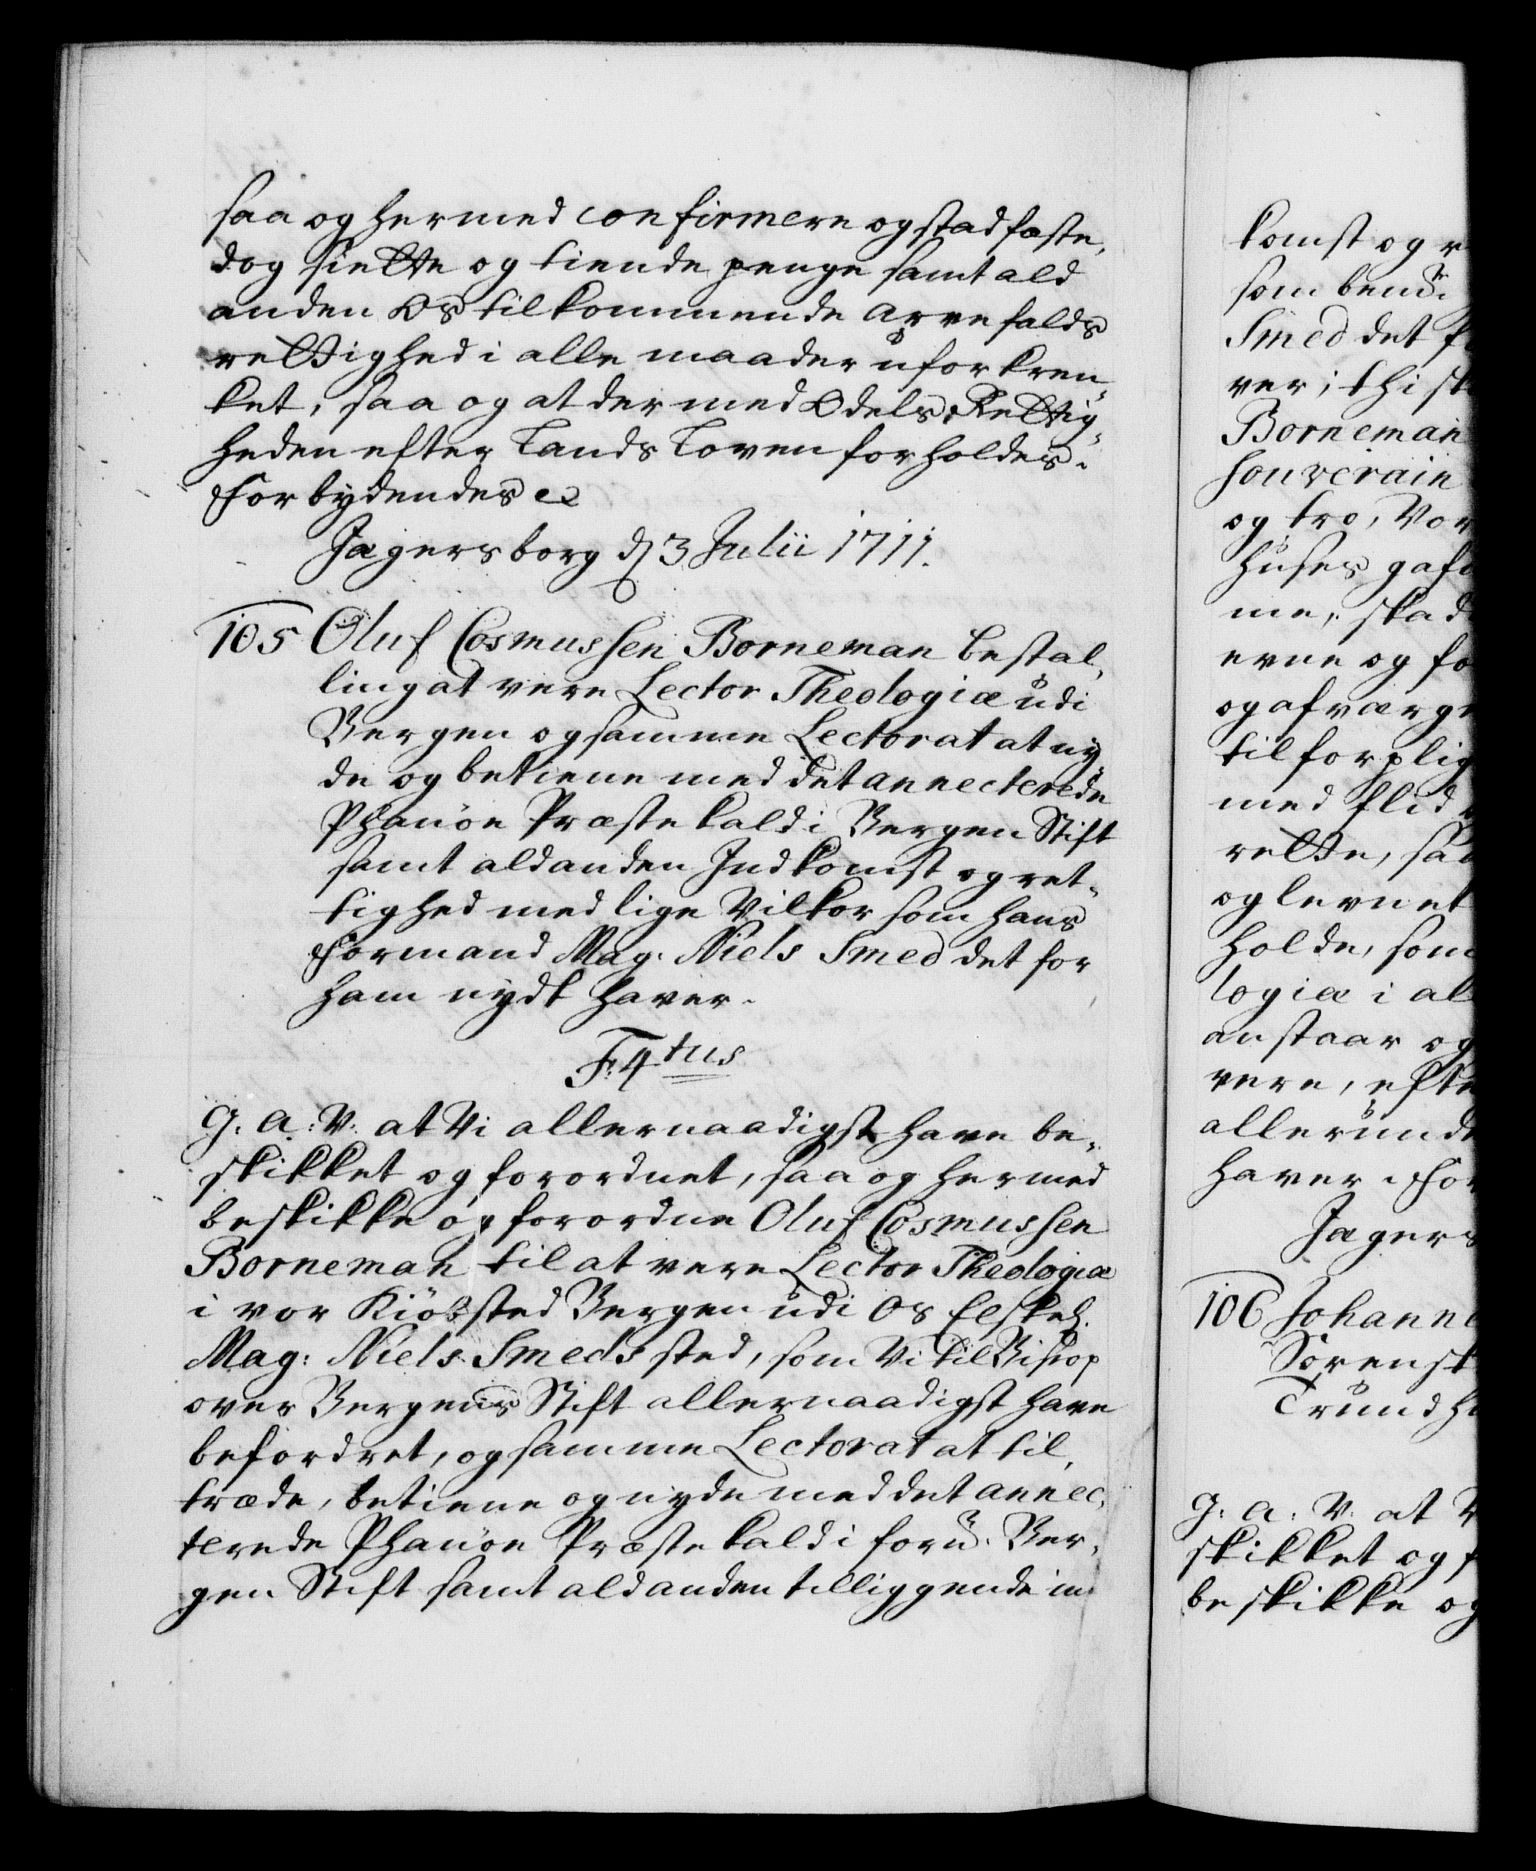 saa og hermed confirmere og stadfæste,
dog siette og tiende penge samt ald
anden Os tilkommende Arvefalds
rettighed i alle maader uforkren„
ket, saa og at der med Odels Rettig„
heden efter Lands Loven forholdes.
Forbydendes &c
Jægersborg d 3 Julii 1711.
105 Oluf Cosmussen Borneman bestal„
ling at vere Lector Theologiæ udi
Bergen og samme Lectorat at ny
de og betiene med det annecterede
Phanöe Præstekald i Bergen Stift
samt ald anden Indkomst og ret„
tighed med lige Vilkor som hans
Formand Mag. Niels Smed det for
ham nydt haver.
F. 4tus
G. A: V: at Vi allernaadigst have be„
skikket og forordnet, saa og hermed
beskikke og forordne Oluf Cosmussen
Borneman til at vere Lector Theologiæ
i vor Kiöbsted Bergen udi Os Elskel.
Mag: Niels Smeds sted, som Vi til Biscop
over Bergens Stift allernaadigst have
befordret, og samme Lectorat at til„
træde, betiene og nyde med det annec„
terede Phanöe Præstekald i foru. Ber„
gen Stift samt ald anden tilliggende in
komst og r
som benu
Smed det f
ver; thi sk
Borneman
souverain
og tro, Vor
huses gafn
me, skad
evne og fo
og afværge
til forplig
med flid
rette, saa
og levnet
holde, som
logiæ i al
anstaar og
vere, efte
allerunde
haver. For
Jægers
106 Johanne
Sörensk
Trundh
G. A: V: at V
skikket og f
beskikke og